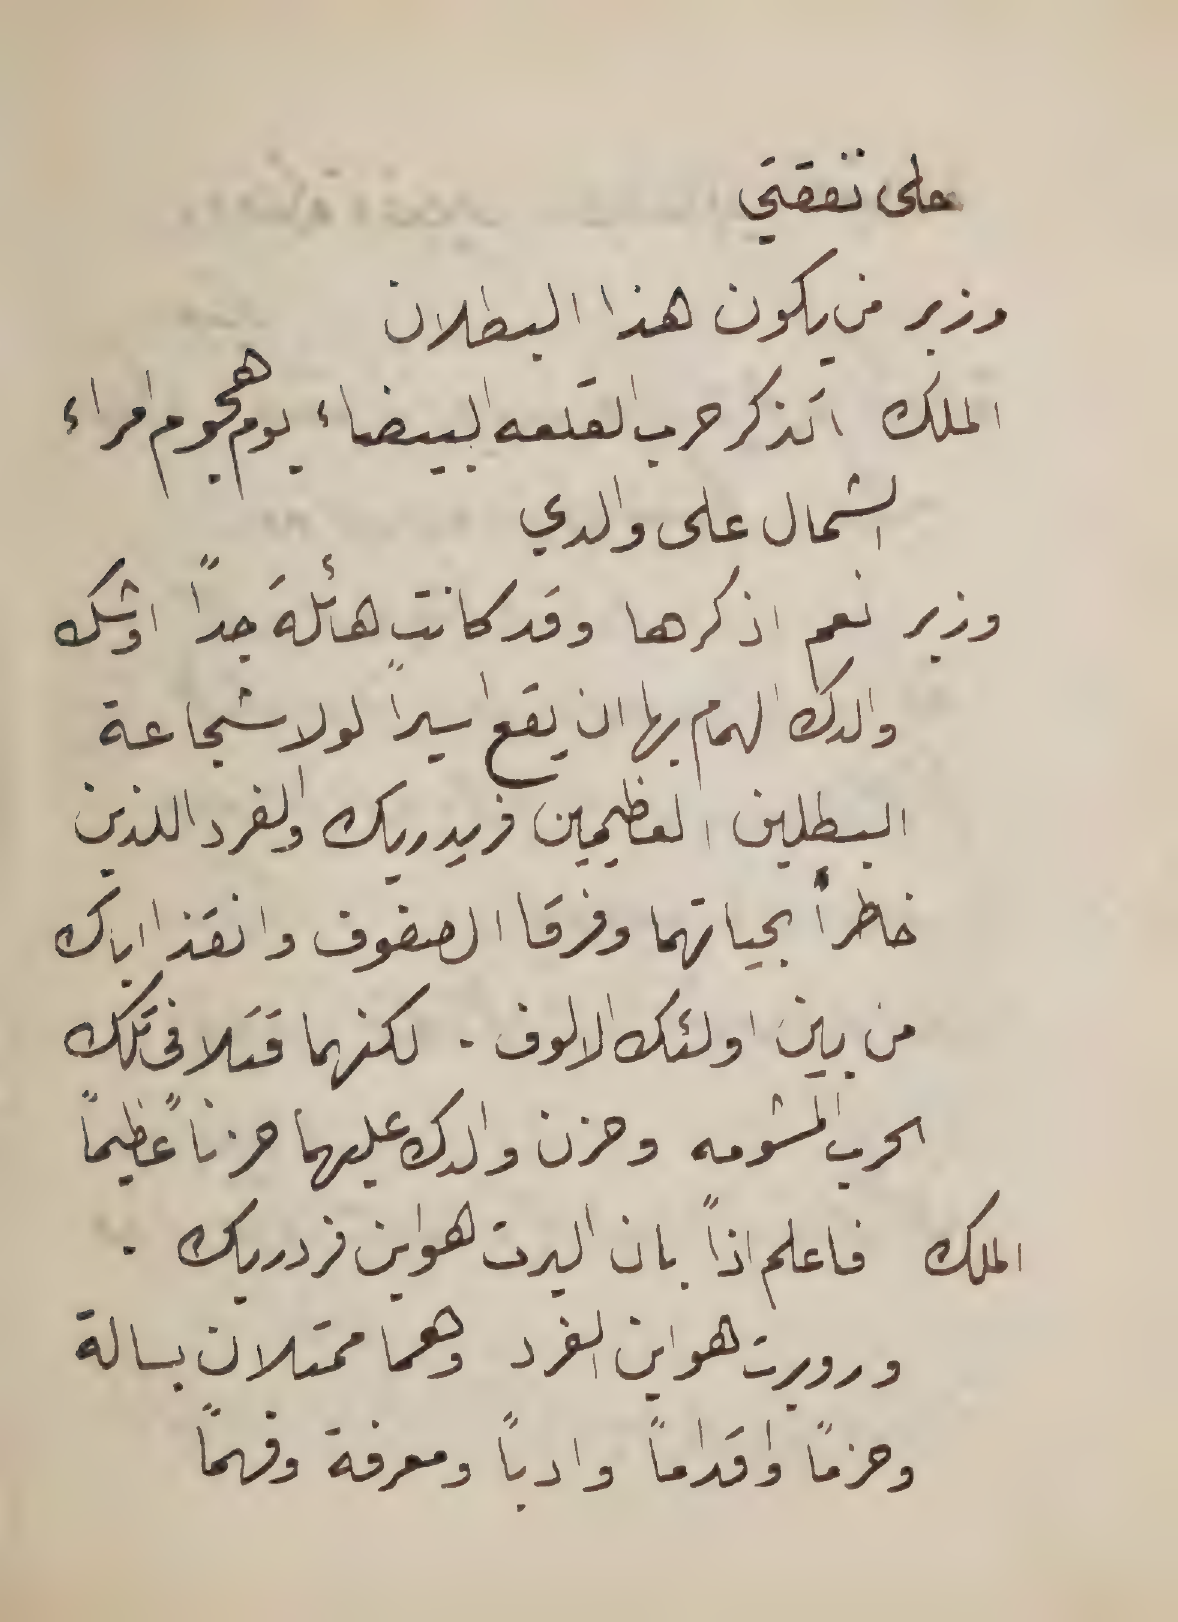 على نفقتي
وزير من يكون هذا البطلان
الملك اتذكر حرب القلعه البيضاء يوم هجوم امراء
الشمال على والدي
وزير نعم اذكرها وقد كانت هائلة جداً اوشك
والدك الهمام بها ان يقع اسيراً لولا شجاعة
البطلين العظيمين فريدريك والفرد اللذين
خاطرا بحياتهما وفرقا الصفوف وانقذا اباك
من بين اولئك الالوف . لكنهما قتلا في تلك
الحرب المشومه وحزن والدك عليهما حزناً عظيماً
الملك فاعلم اذاً بان البرت هو ابن فردريك .
وروبرت هو ابن الفرد وهما ممتلان بسالة
وحزماً واقداماً وادباً ومعرفة وفهماً